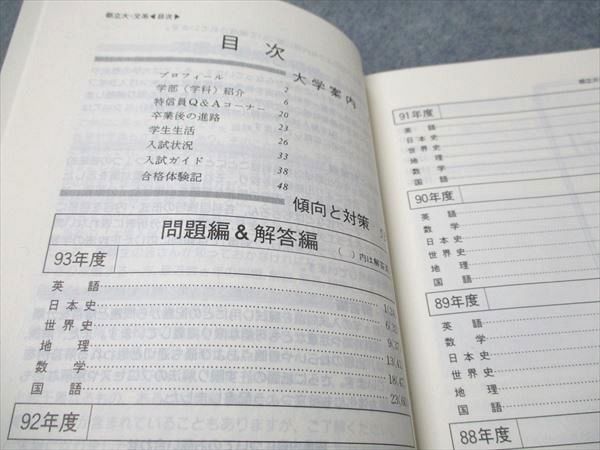 都立大-文系◀目次▶
目次
大学案内
プロフィール 2
学部（学科）紹介 6
特信員Q&Aコーナー 20
卒業後の進路 23
学生生活 26
入試状況 33
入試ガイド 38
合格体験記 48
傾向と対策
問題編&解答編
（ ）内は解答
93年度
英語
日本史
世界史
地理
数学
国語
92年度
91年度
英語
日本史
世界史
地理
数学
国語
90年度
英語
数学
日本史
世界史
地理
国語
89年度
英語
数学
日本史
世界史
地理
国語
88年度